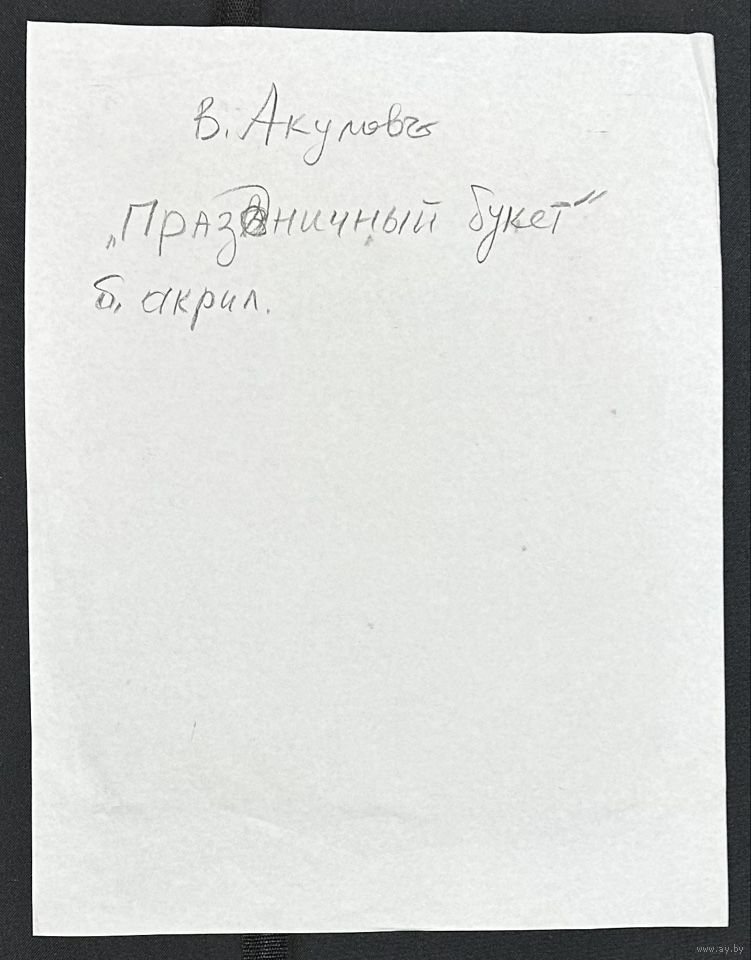 В. Акулова
„Праздничный букет"
б. акрил.
www.ay.by